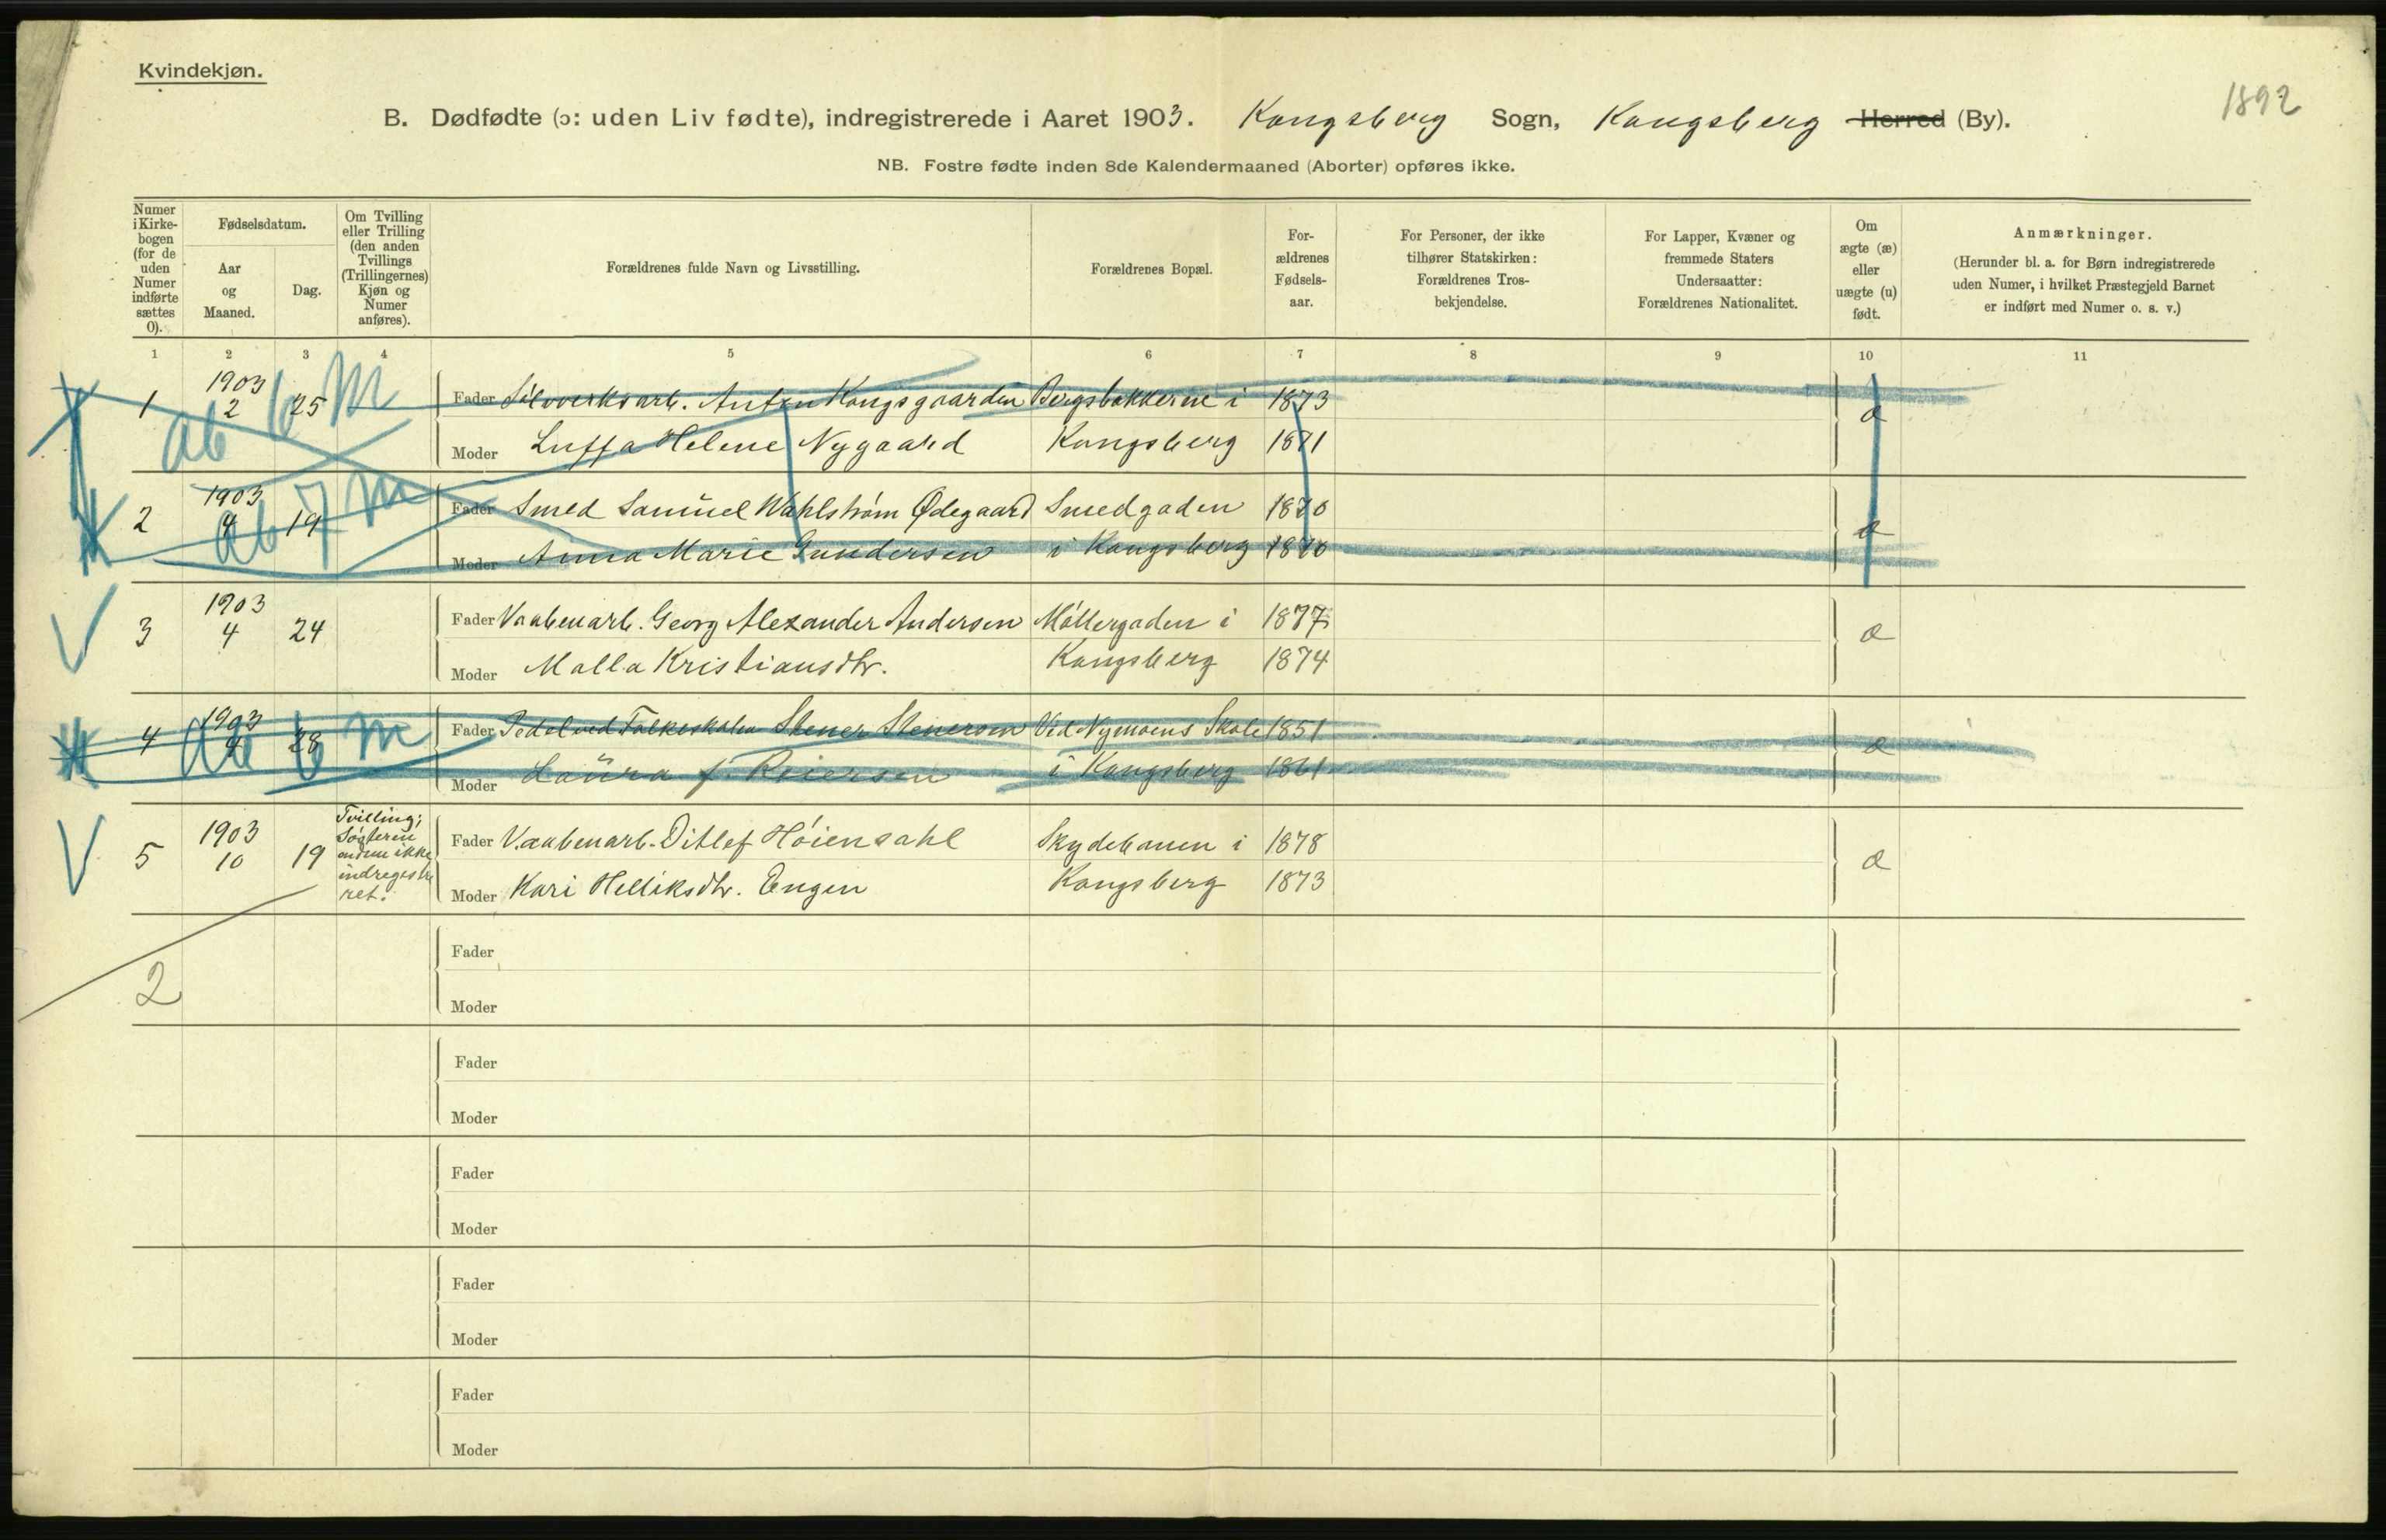 Kvindekjøn.
1892
B. Dødfødte (ɔ: uden Liv fødte), indregistrerede i Aaret 1903. Kongsberg Sogn, Kongsberg Herred (By).
NB. Fostre fødte inden 8de Kalendermaaned (Aborter) opføres ikke.
Numer i Kirke-bogen (for de uden Numer indførte sættes 0).
Fødselsdatum.
Aar og Maaned.
Dag.
Om Tvilling eller Trilling (den anden Tvillings (Trillingernes) Kjøn og Numer anføres).
Forældrenes fulde Navn og Livsstilling.
Forældrenes Bopæl.
For-ældrenes Fødsels-aar.
For Personer, der ikke tilhører Statskirken: Forældrenes Tros-bekjendelse.
For Lapper, Kvæner og fremmede Staters Undersaatter: Forældrenes Nationalitet.
Om ægte (æ) eller uægte (u) født.
Anmærkninger. (Herunder bl. a. for Børn indregistrerede uden Numer, i hvilket Præstegjeld Barnet er indført med Numer o. s. v.)
1 2 3 4 5 6 7 8 9 10 11
1 1903 2 25 Fader Sølvverksarb. Anton Kongsgaarden Bergsbakkerne i 1873 æ
ab 6 m
Moder Luffa Helene Nygaard Kongsberg 1871
2 1903 4 19 Fader Smed Samuel Wahlstrøm Ødegaard Smedgaden 1870 æ
ab 7 m
Moder Anna Marie Gundersen i Kongsberg 1870
3 1903 4 24 Fader Vaabenarb. Georg Alexander Andersen Møllergaden i 1877 æ
Moder Malla Kristiansdtr. Kongsberg 1874
4 1903 4 28 Fader Pedel ved Folkeskolen Stener Stenersen Ved Nymoens Skole 1851 æ
ab 6 m
Moder Laura f. Reiersen i Kongsberg 1861
5 1903 10 19 Tvilling; Søsteren endnu ikke indregistreret. Fader Vaabenarb. Ditlef Høiensahl Skydebanen i 1878 æ
Moder Kari Helliksdtr. Engen Kongsberg 1873
2
Fader
Moder
Fader
Moder
Fader
Moder
Fader
Moder
Fader
Moder